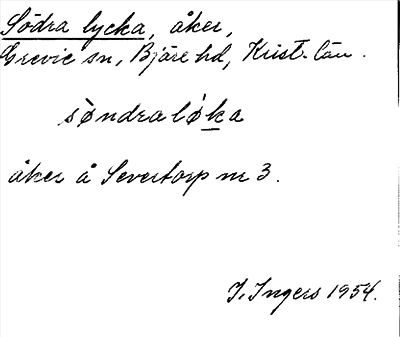 Södra lycka, åker,
Grevie sn, Bjäre hd, Krist. län.
sø̀ndralø̀ka
åker å Severtorp nr 3.
I. Ingers 1954.